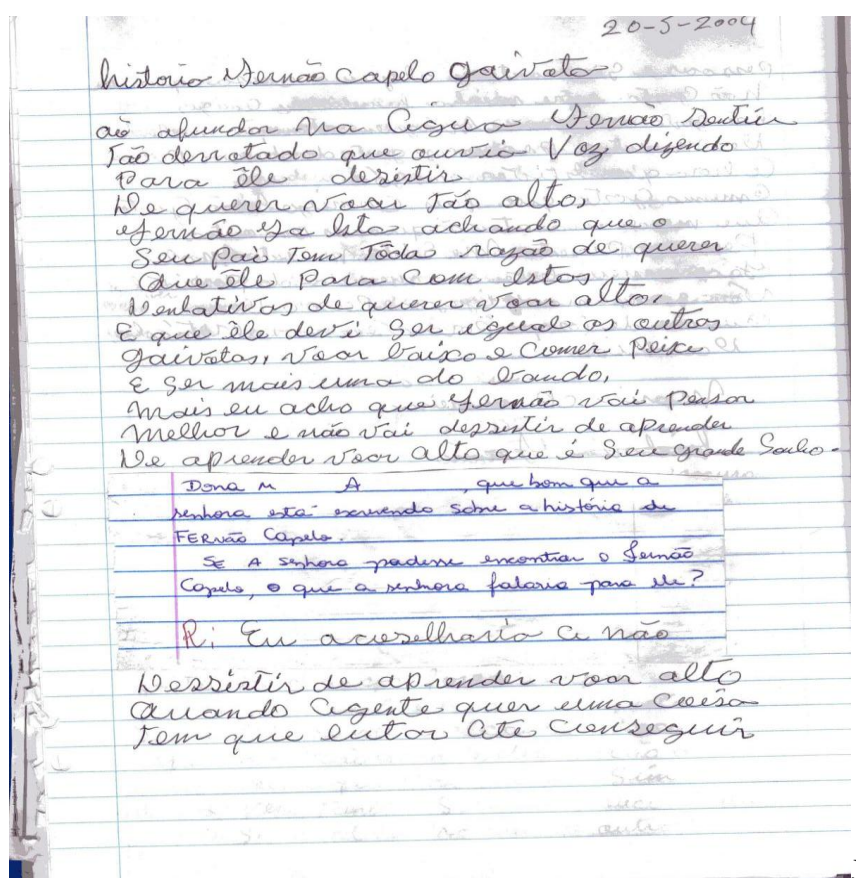 20-5-2004
historia Fernão Capelo gaivota
aó afundor na água Fernão Sentiu
Tão derrotado que ouvia Voz dizendo
Para êle desistir
De querer voar Tão alto,
Fernão Ja Esta achando que o
Seu Pai Tem Tôda razão de querer
Que êle Para Com Estas
Tentativas de querer voar alto.
E que êle devi Ser igual as outros
gaivotas, voar baixo e Comer Peixe
E Ser mais uma do bando,
Mais eu acho que Fernão vai Pensar
Melhor e não vai dessistir de aprender
De aprender voar alto que é Seu grande Sonho.
Dona M A , que bom que a
senhora está escrevendo sobre a história de
FERNão Capelo.
SE A senhora pudesse encontrar o Fernão
Capelo, o que a senhora falaria para ele?
R: Eu aconselharia a não
Dessistir de aprender voar alto
Quando agente quer uma coisa
Tem que lutar ate conseguir